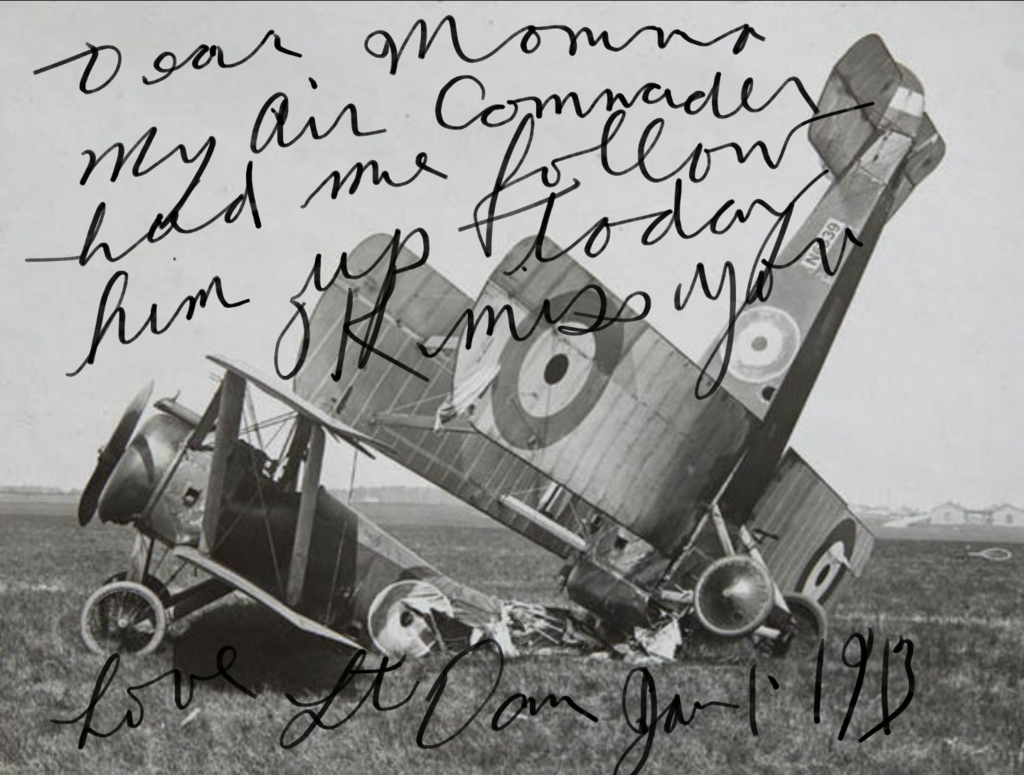 Dear Momma
my Air Commader
had me follow
him up today
I miss you
N6339
Love Lt Dan Jan 1. 1913